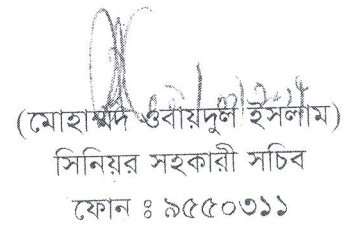 (মোহাম্মদ ওবায়দুল ইসলাম)
সিনিয়র সহকারী সচিব
ফোন ঃ ৯৫৫০৩১১